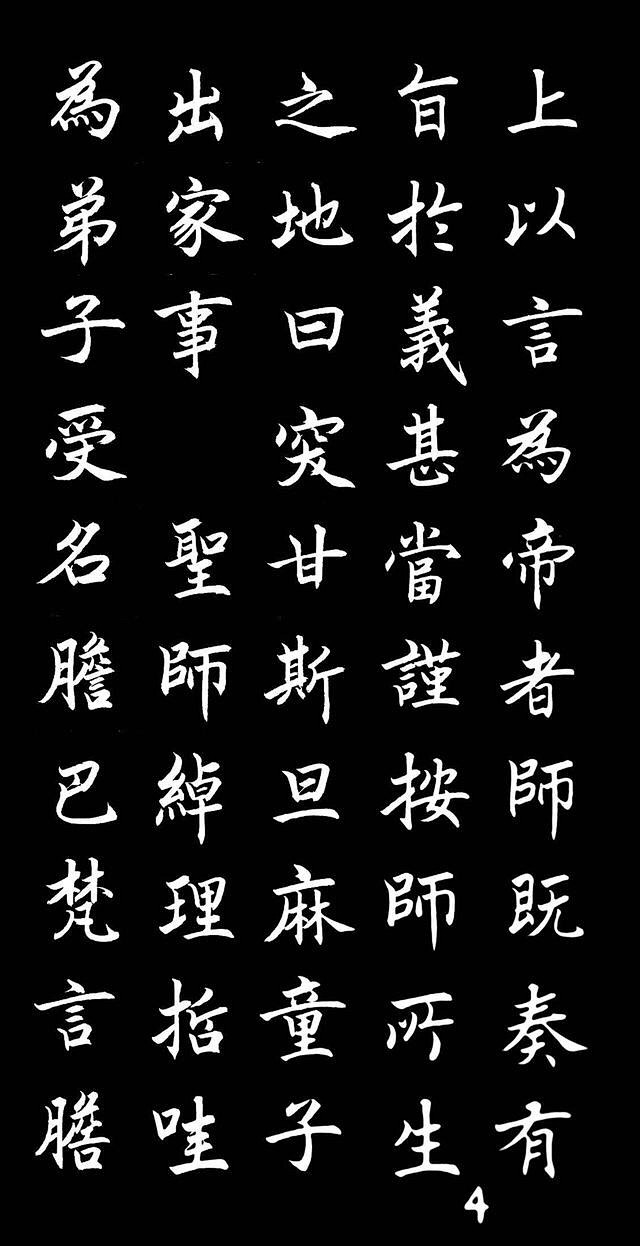 上以言為帝者師既奏有
旨於義甚當謹按師所生
之地曰突甘斯旦麻童子
出家事 聖師綽理哲哇
為弟子受名膽巴梵言膽
4